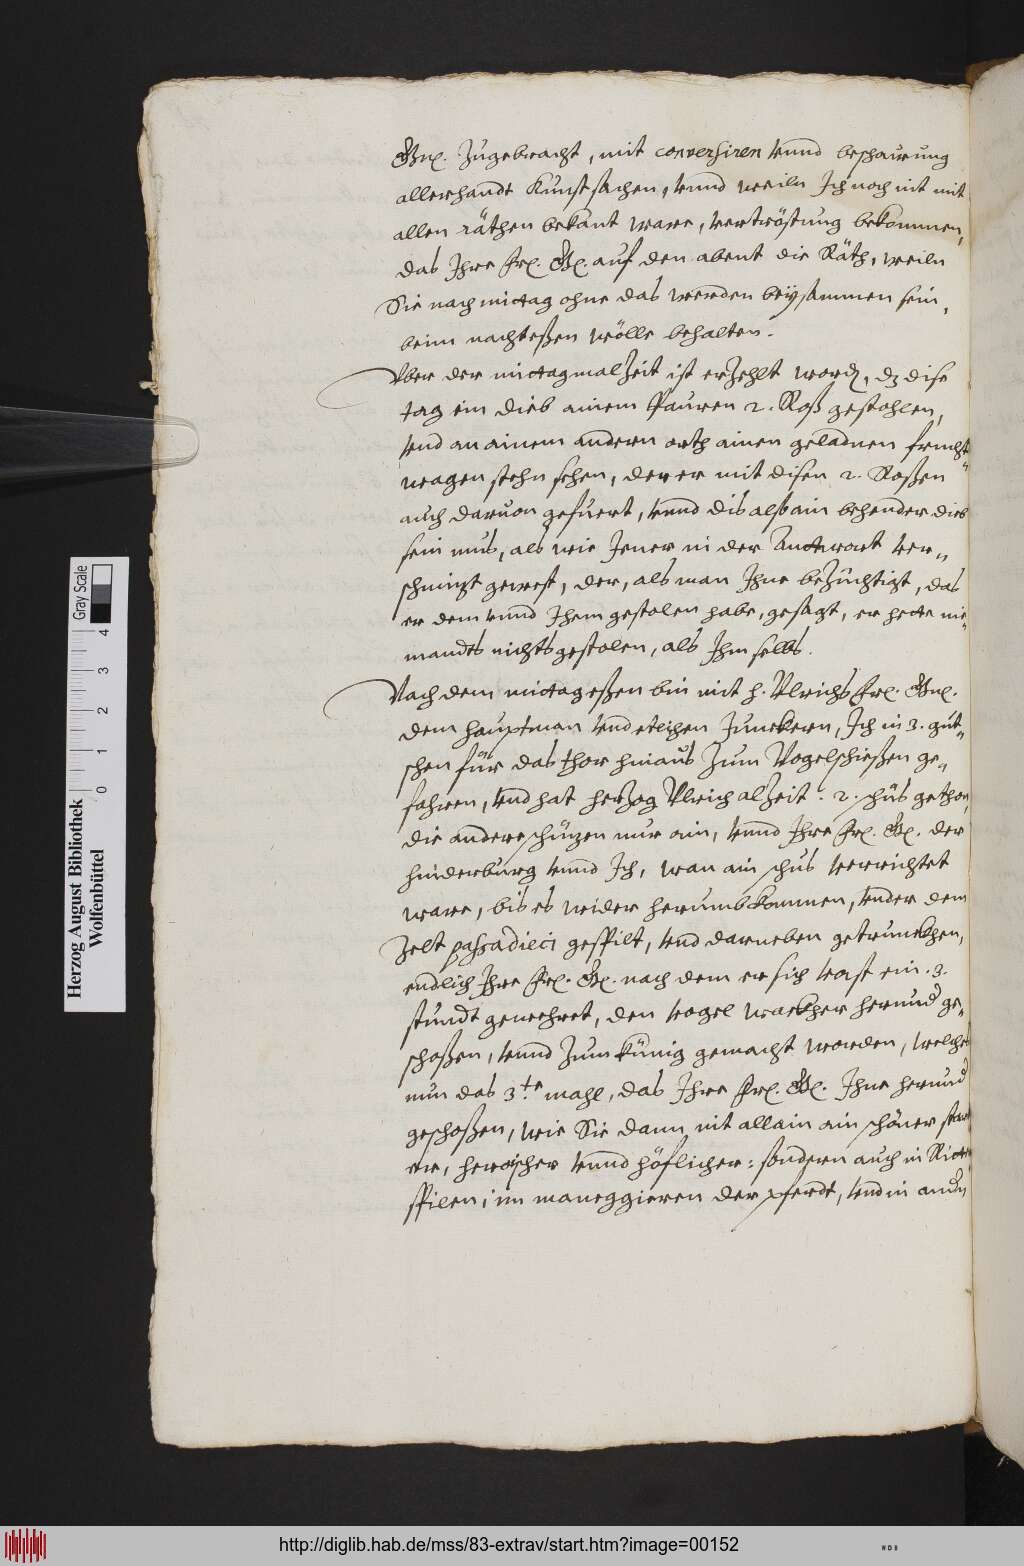 Gn. Zugebracht, mit conversiren vnnd beschawung
allerhandt Kunstsachen, vnnd weiln Ich noch nit mit
allen räthen bekant ware, vertröstung bekommen,
das Ihre frl. Gn. auf den abent die Räth, weiln
Sie nach mittag ohne das werden beysammen sein,
beim nachteßen wölle behalten.
Vber der mittagmalZeit ist erZehlt word, dz dise
tag ein dieb ainem Pauren 2. Roß gestohlen,
vnd an ainem andern orth ainen geladnen frucht
wagen stehn sehen, den er mit disen 2. Roßen
auch daruon gefuert, vnnd dis alß ain behender dieb
sein mus, als wie Jener in der Antwort ver-
schmizt gewest, der, als man Ihne beZüchtigt, das
er dem vnnd Ihem gestolen habe, gesagt, er hette nie-
mandts nichts gestolen, als Ihm selbs.
Nach dem mittageßen bin mit h. Vlrichs frl. Gn.
dem hauptman vnd etlichen Junckern, Ich in 3. gut-
schen für das thor hinaus Zum Vogelschießen ge-
fahren, vnd hat herZog Vlrich alZeit. 2. schüs gethon,
die andere schüzen nur ain, vnnd Ihre frl. Gn. der
hinderburg vnnd Ich, wan ain schus verrichtet
ware, bis es wider herumb kommen, vnder dem
Zelt passadieci gespilt, vnd darneben getrunckhen,
endlich Ihre frl. Gn. nach dem er sich vast ein. 3.
stundt gewehret, den vogel wackher herund ge-
schoßen, vnnd Zum künig gemacht worden, welches
nun das 3.te mahl, das Ihre frl. Gn. Ihne herund
geschoßen, wie Sie dann nit allain ain schöner
heroischer vnnd höflicher: sondern auch in Ritter
spilen, im maneggieren der pferdt, vnd in andn